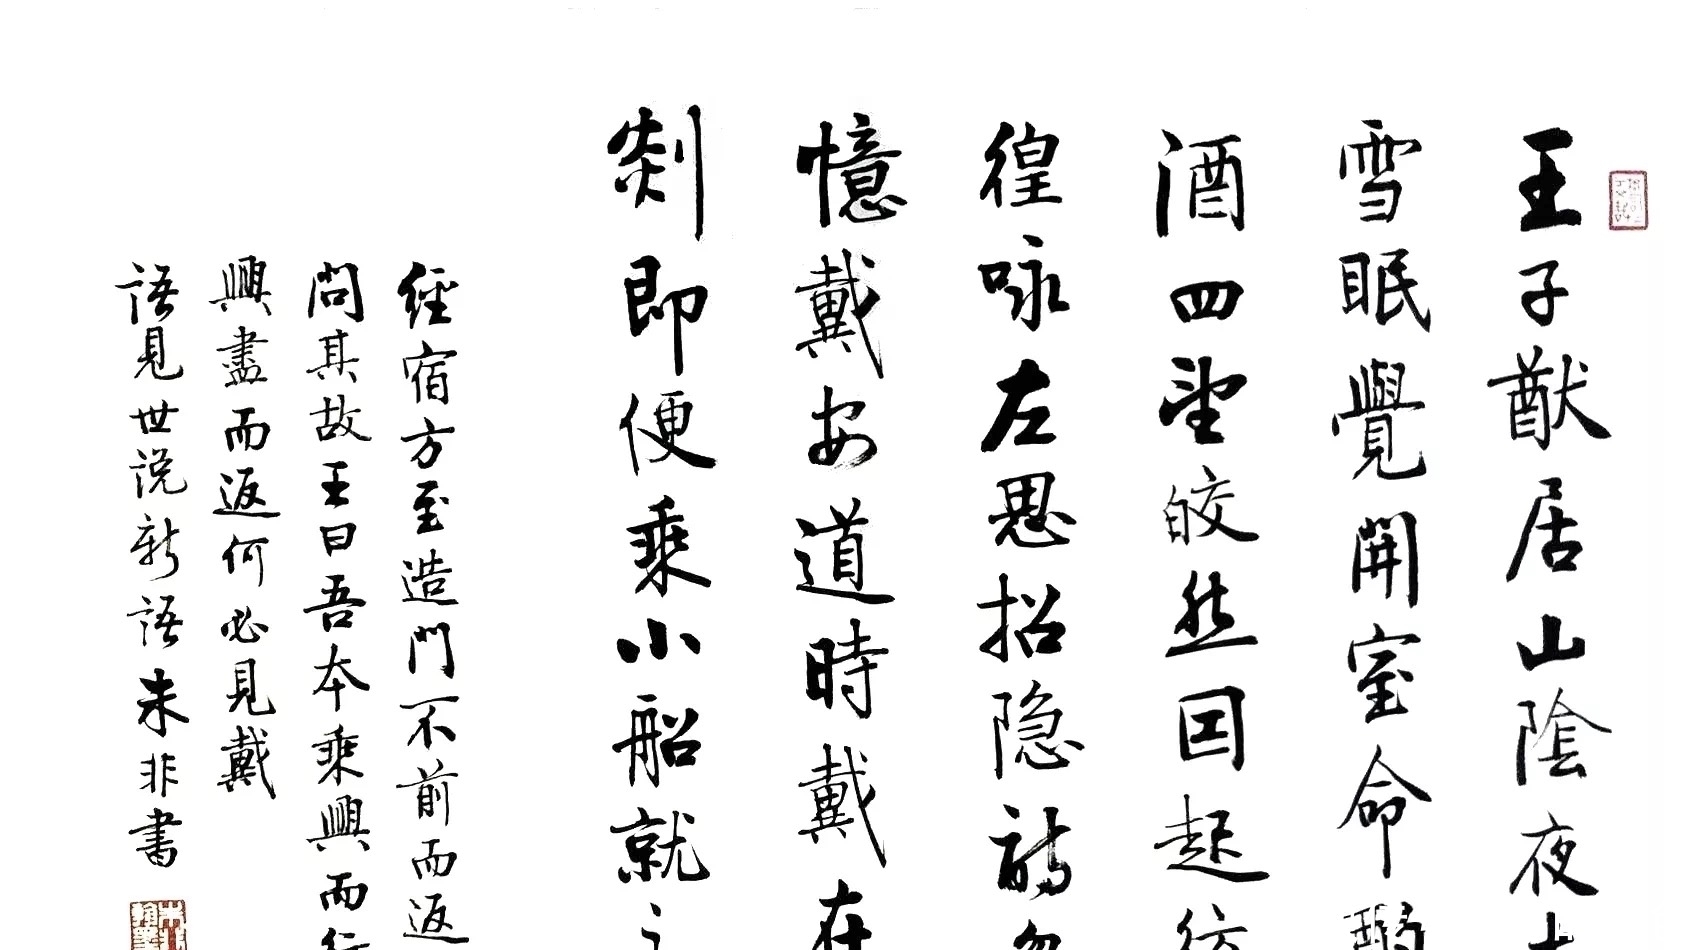 王子猷居山陰夜大
雪眠覺開室命酌
酒四望皎然因起彷
徨咏左思招隐詩忽
憶戴安道時戴在
剡即便乘小船就之
經宿方至造門不前而返
問其故王曰吾本乘興而行
興盡而返何必見戴
語見世说新語朱非書